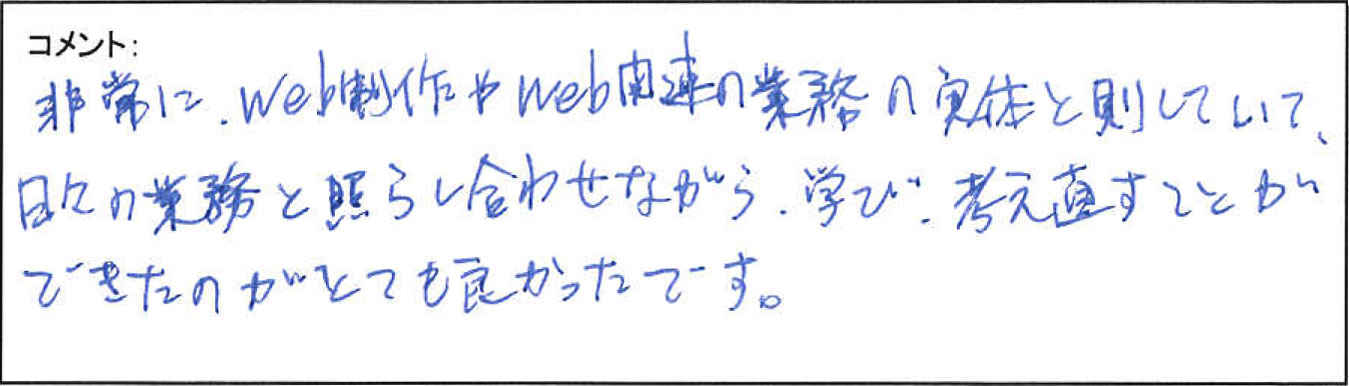 コメント：
非常に、Web制作やWeb関連の業務の実体と則していて、
日々の業務と照らし合わせながら、学び、考え直すことが
できたのがとても良かったです。